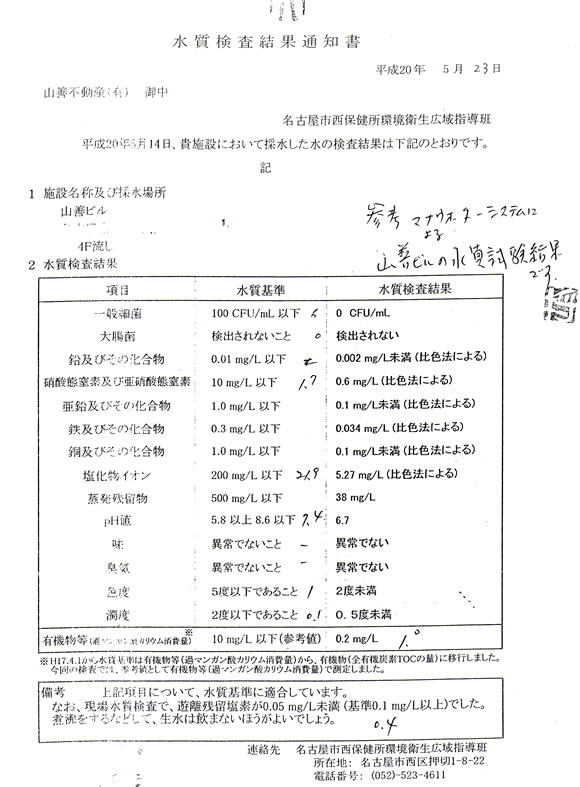 水質検査結果通知書
平成20年 5月23日
山善不動産(有) 御中
名古屋市西保健所環境衛生広域指導班
平成20年5月14日、貴施設において採水した水の検査結果は下記のとおりです。
記
1 施設名称及び採水場所
山善ビル
4F流し
参考 マナウォーターシステムに
よる
山善ビルの水質試験結果
です。
2 水質検査結果
項目 水質基準 水質検査結果
一般細菌 100 CFU/mL 以下 0 CFU/mL
大腸菌 検出されないこと 0 検出されない
鉛及びその化合物 0.01 mg/L 以下 0.002 mg/L未満(比色法による)
硝酸態窒素及び亜硝酸態窒素 10 mg/L 以下 1.7 0.6 mg/L(比色法による)
亜鉛及びその化合物 1.0 mg/L 以下 0.1 mg/L未満(比色法による)
鉄及びその化合物 0.3 mg/L 以下 0.034 mg/L(比色法による)
銅及びその化合物 1.0 mg/L 以下 0.1 mg/L未満(比色法による)
塩化物イオン 200 mg/L 以下 21.9 5.27 mg/L(比色法による)
蒸発残留物 500 mg/L 以下 38 mg/L
pH値 5.8 以上 8.6 以下 7.4 6.7
味 異常でないこと － 異常でない
臭気 異常でないこと － 異常でない
色度 5度以下であること 1 2度未満
濁度 2度以下であること 0.1 0.5度未満
有機物等(過マンガン酸カリウム消費量)※ 10 mg/L 以下(参考値) 0.2 mg/L 1.0
※H17.4.1から水質基準は有機物等(過マンガン酸カリウム消費量)から、有機物(全有機炭素TOCの量)に移行しました。
今回の検査では、参考値として有機物等(過マンガン酸カリウム消費量)で測定しました。
備考 上記項目について、水質基準に適合しています。
なお、現場水質検査で、遊離残留塩素が0.05 mg/L未満(基準0.1 mg/L以上)でした。
煮沸をするなどして、生水は飲まないほうがよいでしょう。
0.4
連絡先 名古屋市西保健所環境衛生広域指導班
所在地: 名古屋市西区押切1-8-22
電話番号: (052)-523-4611